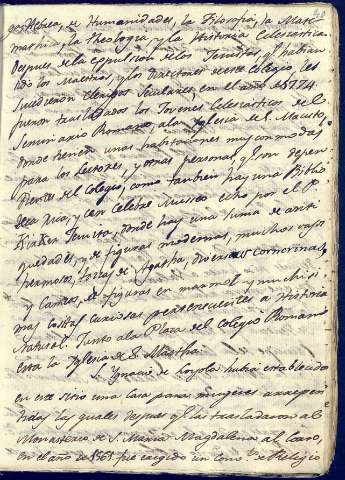 gua Hebrea, de Humanidades, la Filosofia, la Mate
matica, la theologia, y la Historia Eclesiastica
Despues de la expulsion de los Jesuitas, qe habian
sido los Maestros, y los Directores de este Colegio, les
sucedieron Clerigos Seculares, en el año de 1774.
fueron trasladados los Jovenes Eclesiasticos del
Seminario Romano, a la Iglesia de S. Macuto,
donde tienen unas habitaciones muy comodas
para los Lectores, y otras personas, qe son depen
dientes del Colegio, como tambien hay una Biblio
teca rica, y un celebre Musseo echo por el P.
Kirker Jesuita, donde hay una suma de anti
guedades, y de figuras modernas, muchos vasos
hermosos, tazas de Agatha, diversas Cornerinas,
y Cameos, de figuras en marmol y muchisi
mas cosas curiosas pertenecientes a Historia
Natural. Junto a la Plaza del Colegio Romano
esta la Iglesia de S. Martha.
S. Ignacio de Loyola habia establecido
en este sitio una Casa para mugeres arrepen
tidas las quales despues qe las trasladaron al
Monasterio de S. Maria Magdalena al Corso,
en el año de 1561 fue erigido un Convto de Religio